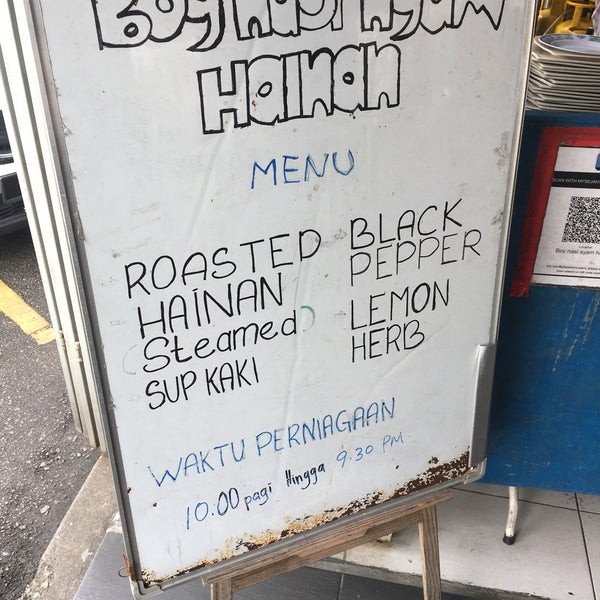 Boy NASI AYAM
HAINAN
MENU
ROASTED
HAINAN
(Steamed)
SUP KAKI
BLACK
PEPPER
LEMON
HERB
WAKTU PERNIAGAAN
10.00 pagi Hingga 9.30 PM
SCAN WITH MYSEJAHT
Location
Boy nasi ayam ha